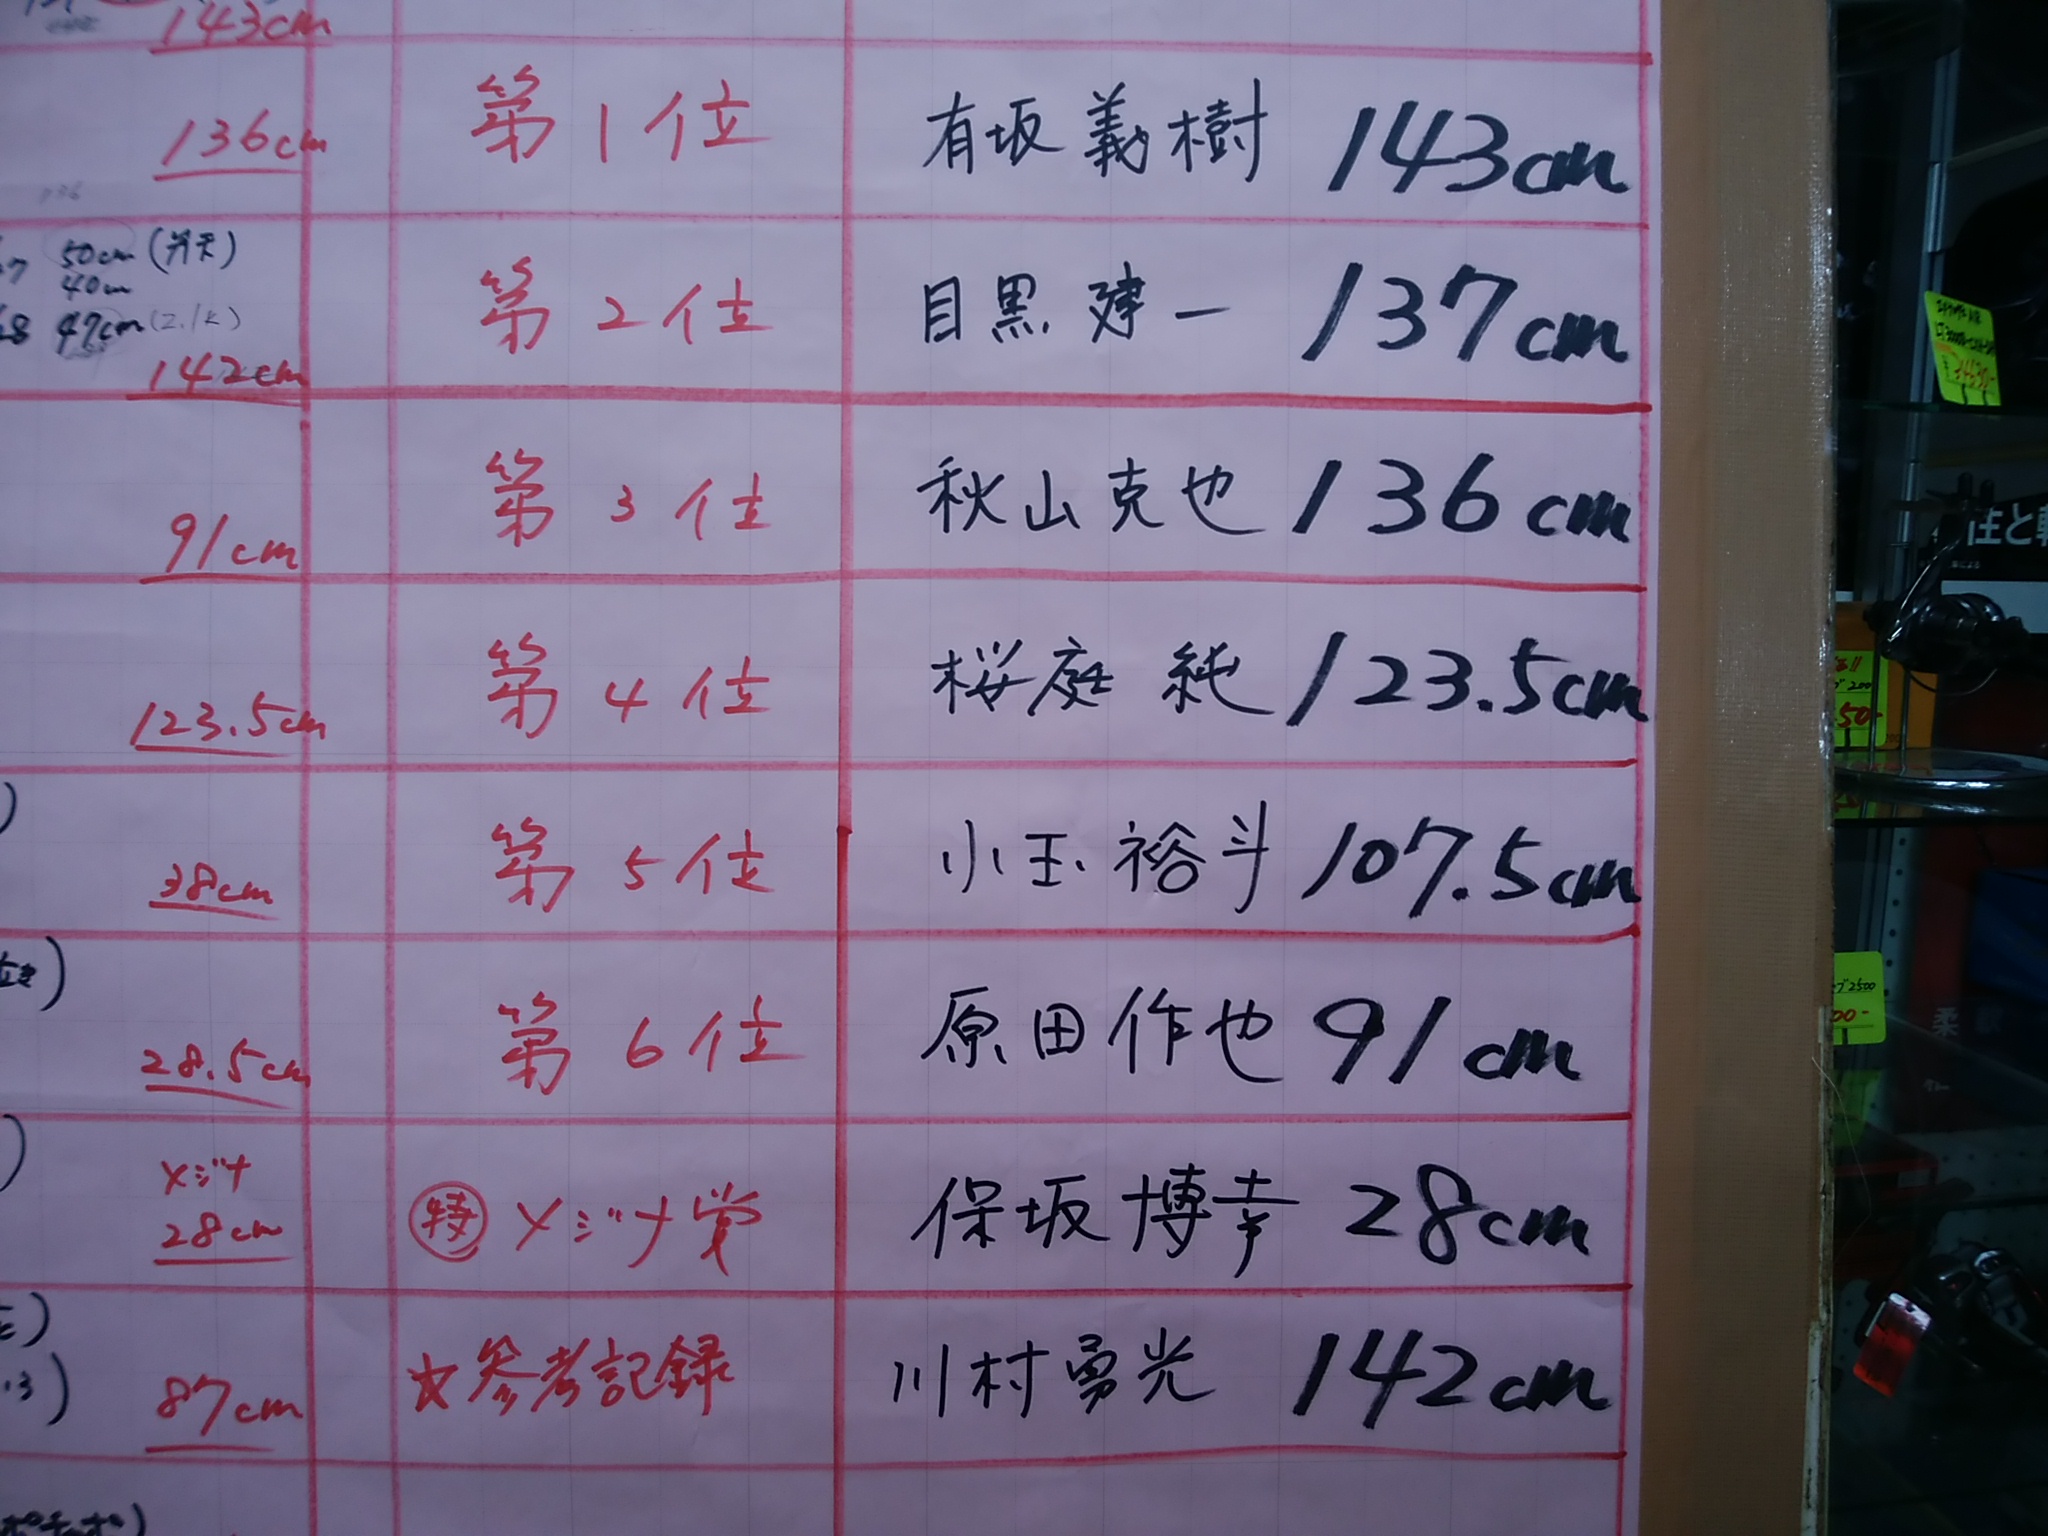 143cm
136cm
第1位 有坂義樹 143cm
50cm(弁天)
40cm
47cm
142cm
第2位 目黒建一 137cm
91cm
第3位 秋山克也 136cm
123.5cm
第4位 桜庭 純 123.5cm
38cm
第5位 小玉裕斗 107.5cm
28.5cm
第6位 原田作也 91cm
メジナ
28cm
特 メジナ賞 保坂博幸 28cm
87cm
☆参考記録 川村勇光 142cm